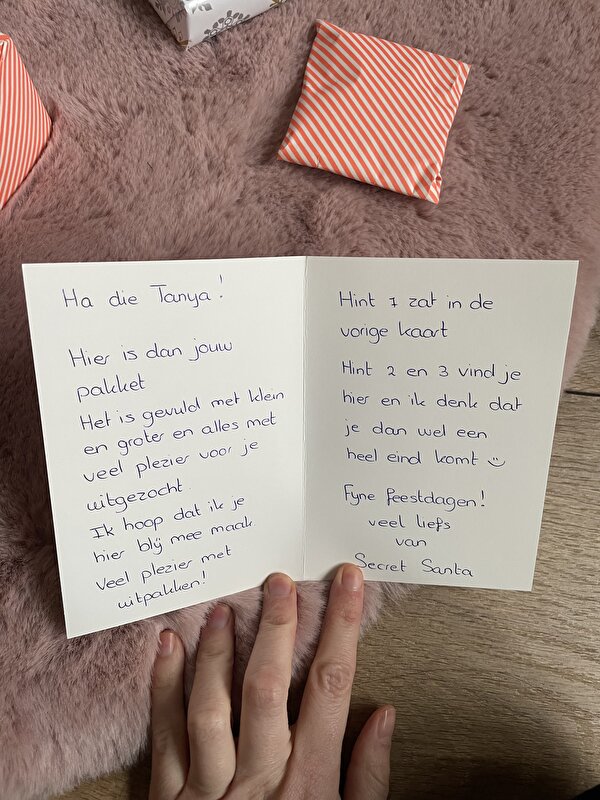 Ha die Tanya!
Hier is dan jouw
pakket
Het is gevuld met klein
en groter en alles met
veel plezier voor je
uitgezocht.
Ik hoop dat ik je
hier blij mee maak.
Veel plezier met
uitpakken!
Hint 1 zat in de
vorige kaart
Hint 2 en 3 vind je
hier en ik denk dat
je dan wel een
heel eind komt ☺
Fijne feestdagen!
veel liefs
van
Secret Santa